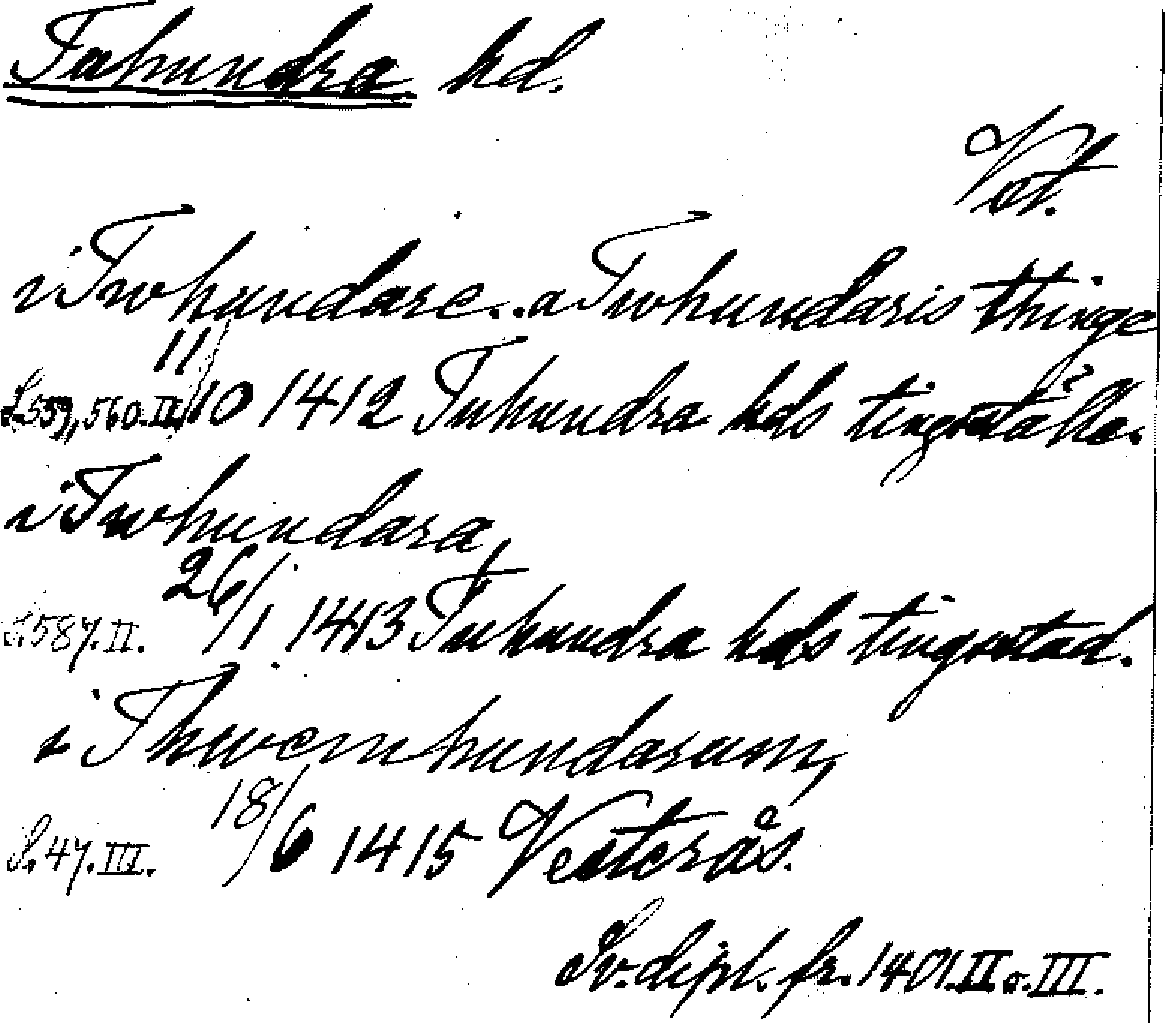 Tuhundra hd.
Vst.
i Twhundare.. a Twhundaris thinge
S. 559, 560. II. 11/10 1412 Tuhundra hds tingställe.
i Twhundara,
S. 587. II. 26/1 1413 Tuhundra hds tingstad.
i Thwemhundarum,
S. 47. III. 18/6 1415 Vesterås.
Sv. dipl. fr. 1401. II o. III.